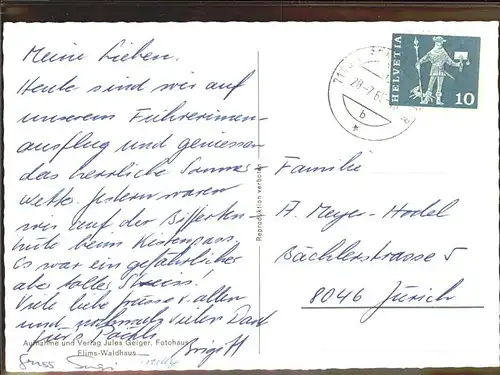 Meine Lieben.
Heute sind wir auf
unserem
ausflug und geniessen
das herrliche Sommer-
wetter. Gestern waren
wir auf der Bifferten-
hütte beim Kistenpass.
Es war ein gefährlicher
aber tolles
Viele liebe Grüsse an allen
und nochmals vielen Dank
fürs Päckli
Brigitt
Gruss Susi
Aufnahme und Verlag Jules Geiger, Fotohaus
Flims-Waldhaus
Reproduktion verboten
HELVETIA
10
28-7.6
b
Familie
A. Meyer-Hodel
Bächlerstrasse 5
8046 Zürich